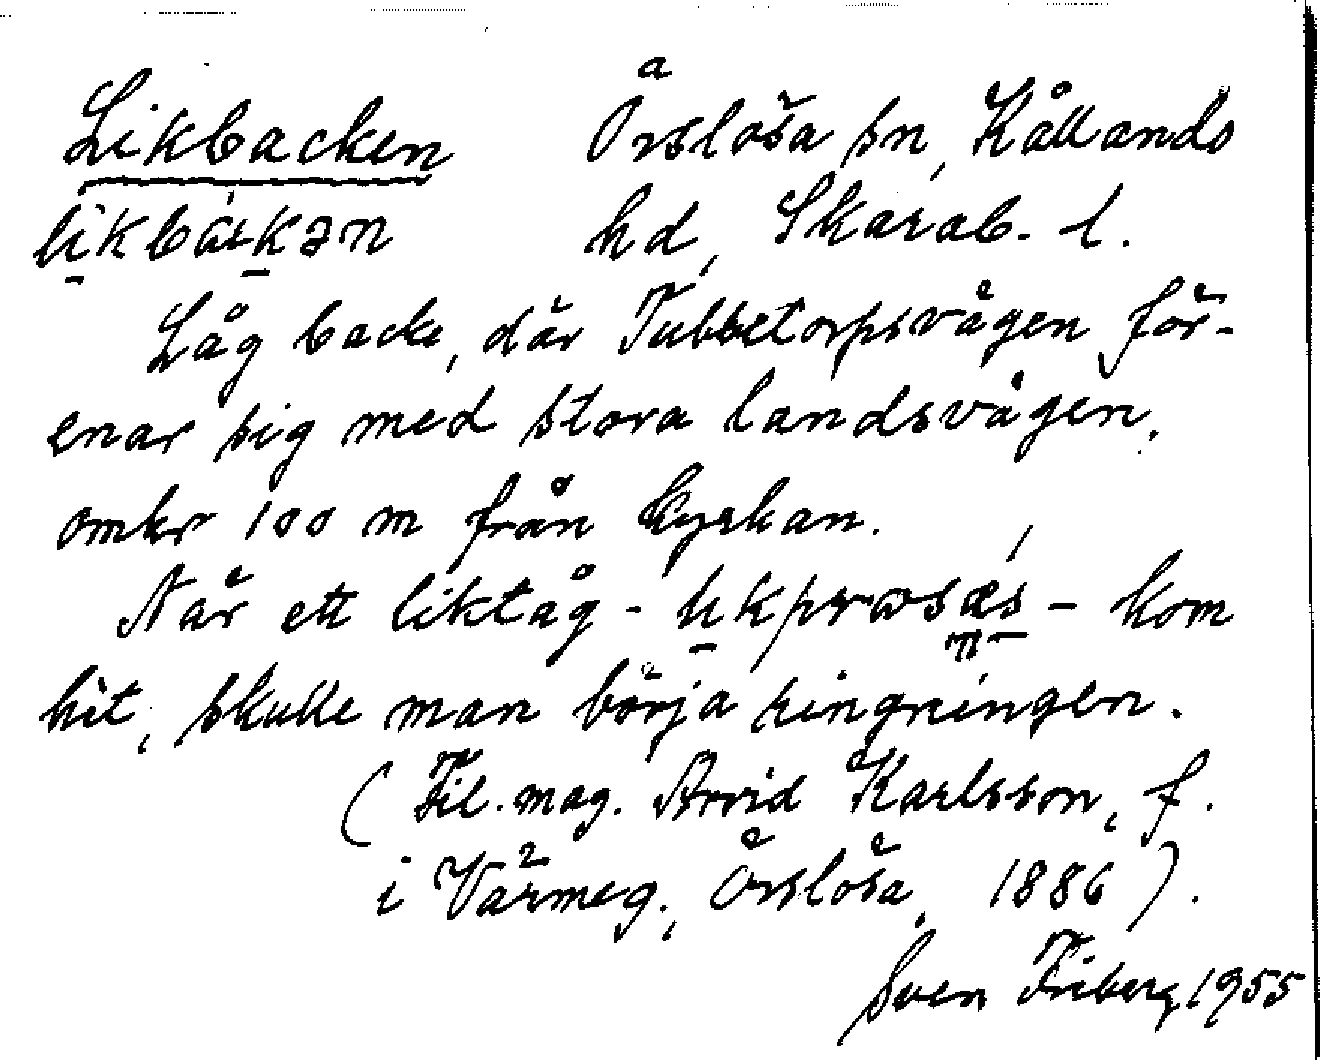 Likbacken Örslösa sn, Kållands
likbakən hd, Skarab. l.
Låg backe, där Tubbetorpsvägen för-
enar sig med stora landsvägen,
omkr 100 m från kyrkan.
När ett liktåg - - kom
hit, skulle man börja ringningen.
(Fil. mag. Arvid Karlsson, f.
i Värmeg., Örslösa, 1886).
Sven Friberg 1955